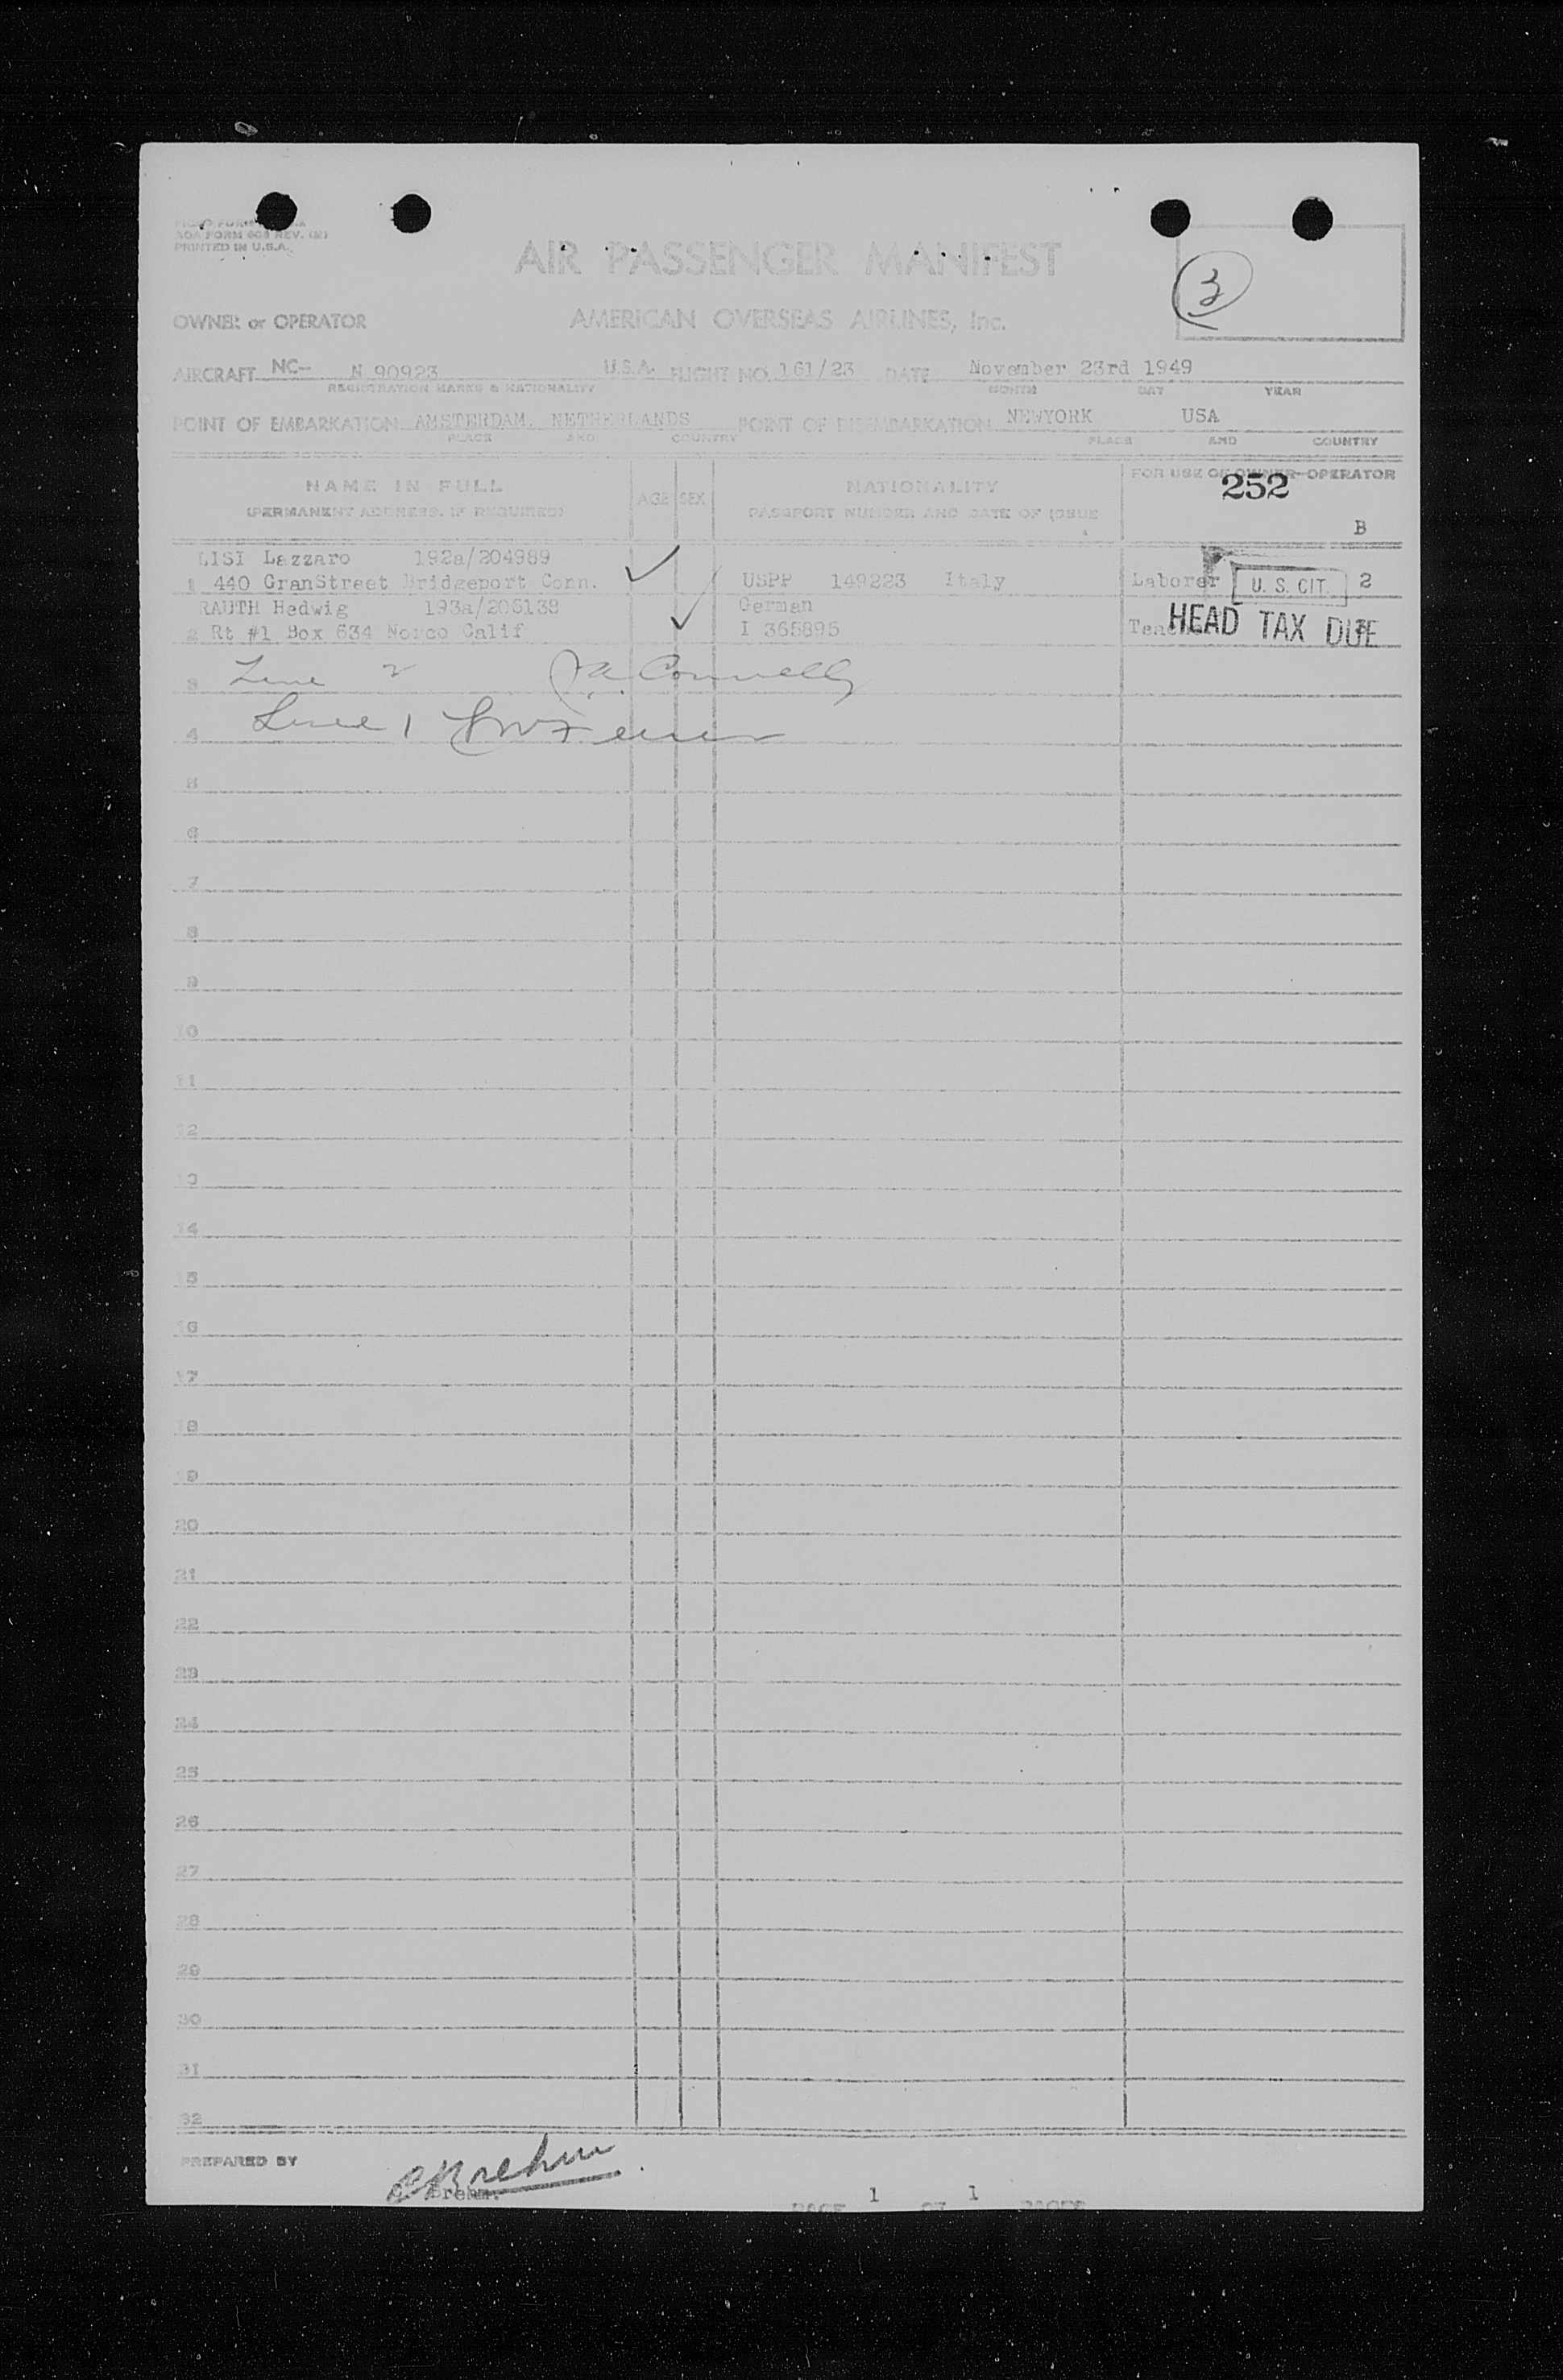 AOA FORM 603 REV.
PRINTED IN U.S.A.
AIR PASSENGER MANIFEST
3
OWNER or OPERATOR AMERICAN OVERSEAS AIRLINES, Inc.
AIRCRAFT NC- N 90923 U.S.A. FLIGHT NO. 161/23 DATE November 23rd 1949
REGISTRATION MARKS & NATIONALITY MONTH DAY YEAR
POINT OF EMBARKATION AMSTERDAM, NETHERLANDS POINT OF DISEMBARKATION NEWYORK USA
PLACE AND COUNTRY PLACE AND COUNTRY
NAME IN FULL AGE SEX NATIONALITY FOR USE OF OWNER-OPERATOR
(PERMANENT ADDRESS, IF REQUIRED) PASSPORT NUMBER AND DATE OF ISSUE 252
B
LISI Lazzaro 192a/204989
1 440 GranStreet Bridgeport Conn. USPP 149223 Italy Laborer U. S. CIT. 2
RAUTH Hedwig 193a/206138 German
2 Rt #1 Box 634 Norco Calif I 365895 HEAD TAX DUE
3 Line 2 Connelly
4 Line 1
5
6
7
8
9
10
11
12
13
14
15
16
17
18
19
20
21
22
23
24
25
26
27
28
29
30
31
32
PREPARED BY Brehm
Brehm.
PAGE 1 OF 1 PAGES